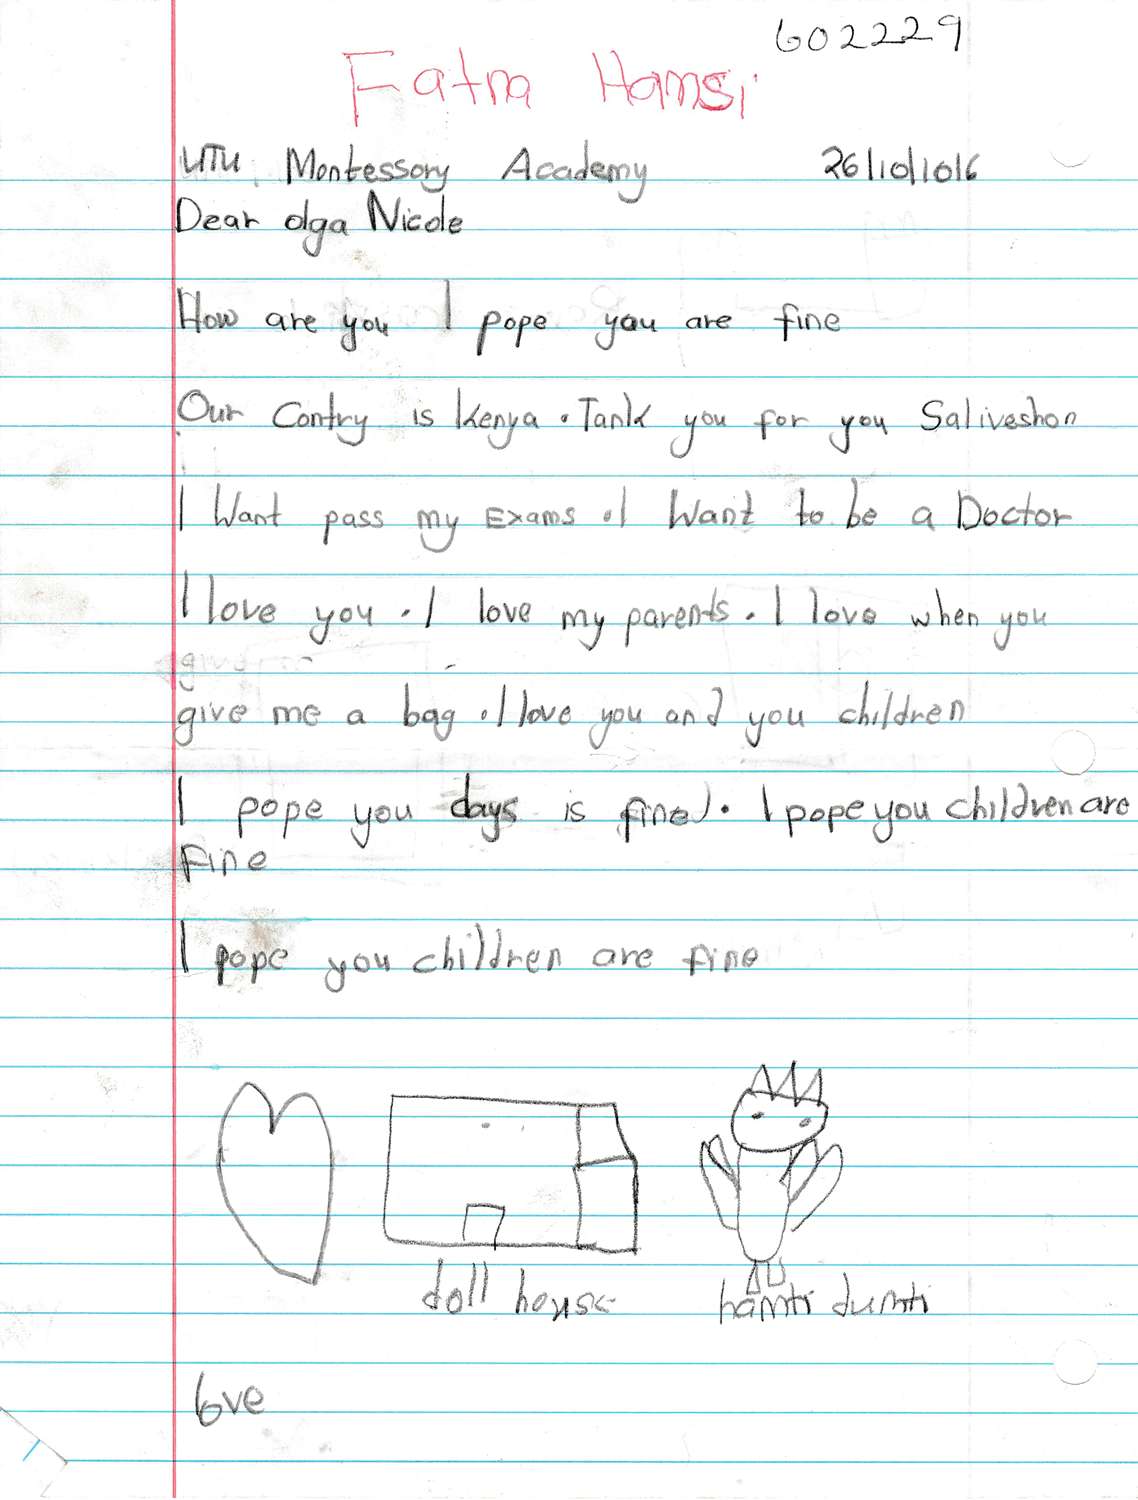 602229
Fatna Hamsi
UTU Montessory Academy 26/10/1016
Dear olga Nicole
How are you I pope you are fine
Our Contry is Kenya . Tank you for you Saliveshon
I Want pass my Exams . I Want to be a Doctor
I love you . I love my parents . I love when you
give me a bag . I love you and you children
I pope you days is fine) . I pope you children are
Fine
I pope you children are fine
doll house
hamti dumti
love